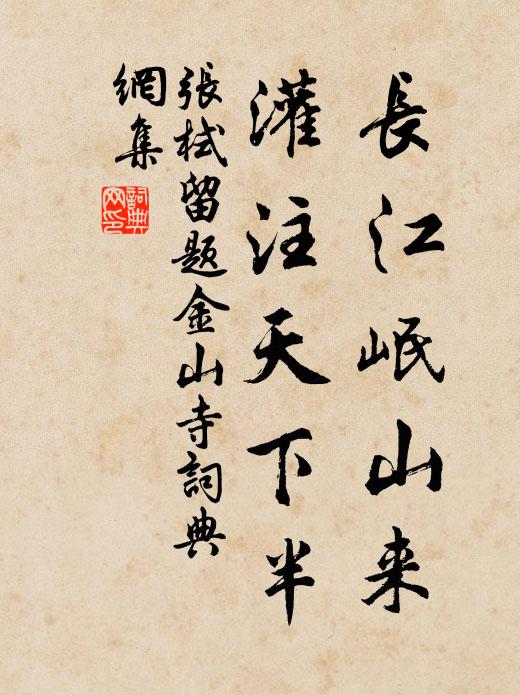 長江岷山来
灌注天下半
張栻留題金山寺詞典
網集
詞典
网印